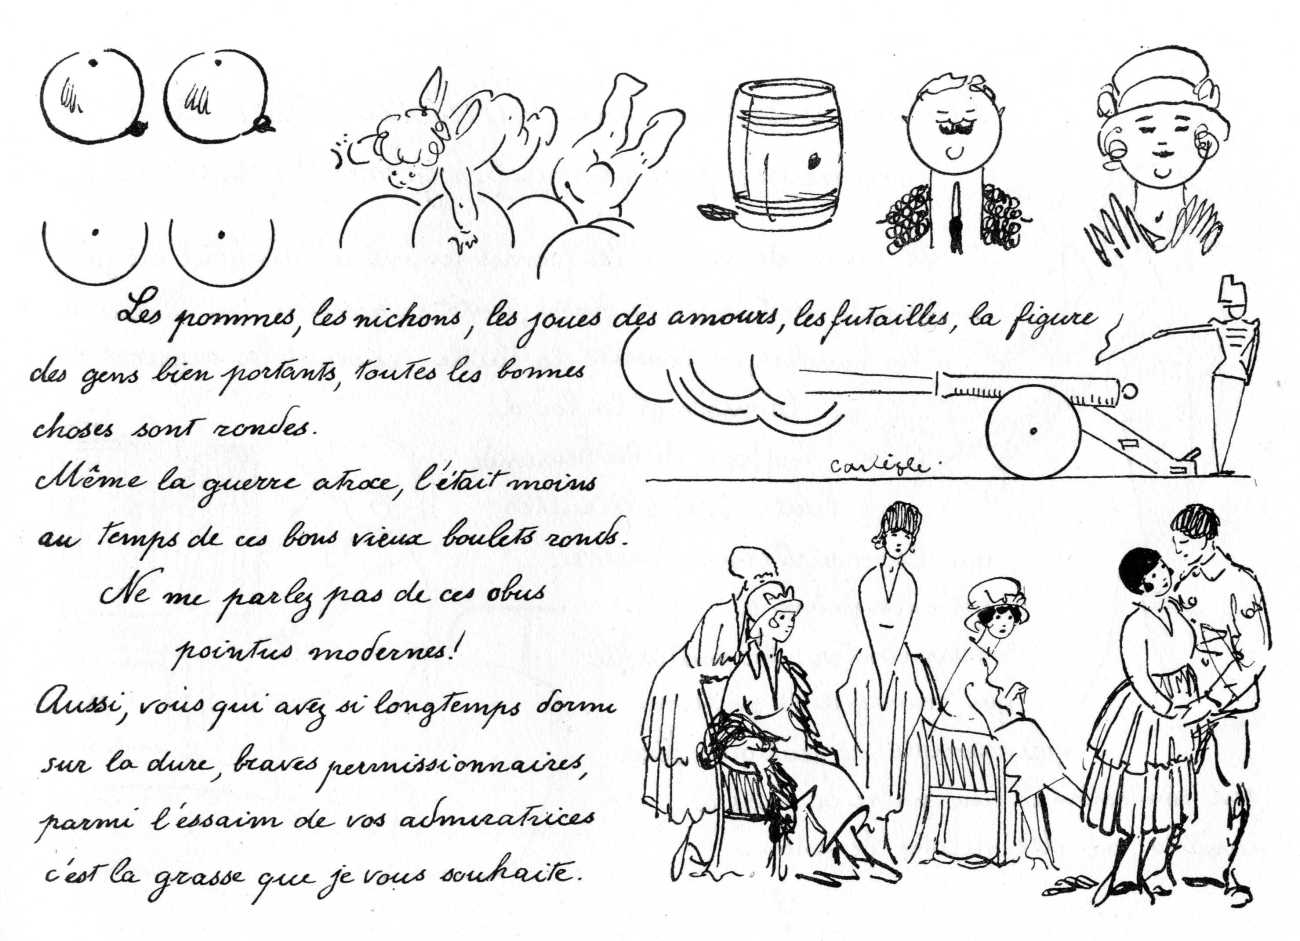 Les pommes, les nichons, les joues des amours, les futailles, la figure
des gens bien portants, toutes les bonnes
choses sont rondes.
Même la guerre atroce, l'était moins
au temps de ces bons vieux boulets ronds.
Ne me parlez pas de ces obus
pointus modernes!
Aussi, vous qui avez si longtemps dormi
sur la dure, braves permissionnaires,
parmi l'éssaim de vos admiratrices
c'est la grasse que je vous souhaite.
Carlègle.
64